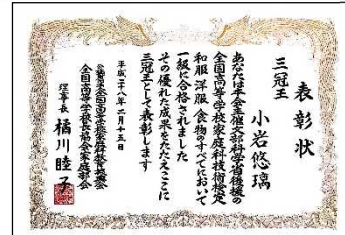 表彰状
三冠王
小岩悠璃
あなたは本会主催文部科学省後援の
全国高等学校家庭科技術検定
和服 洋服 食物のすべてにおいて
一級に合格されました
その優れた成果をたたえここに
三冠王として表彰します
平成二十八年二月十五日
全国高等学校長協会家庭部会
理事長 橋川睦子